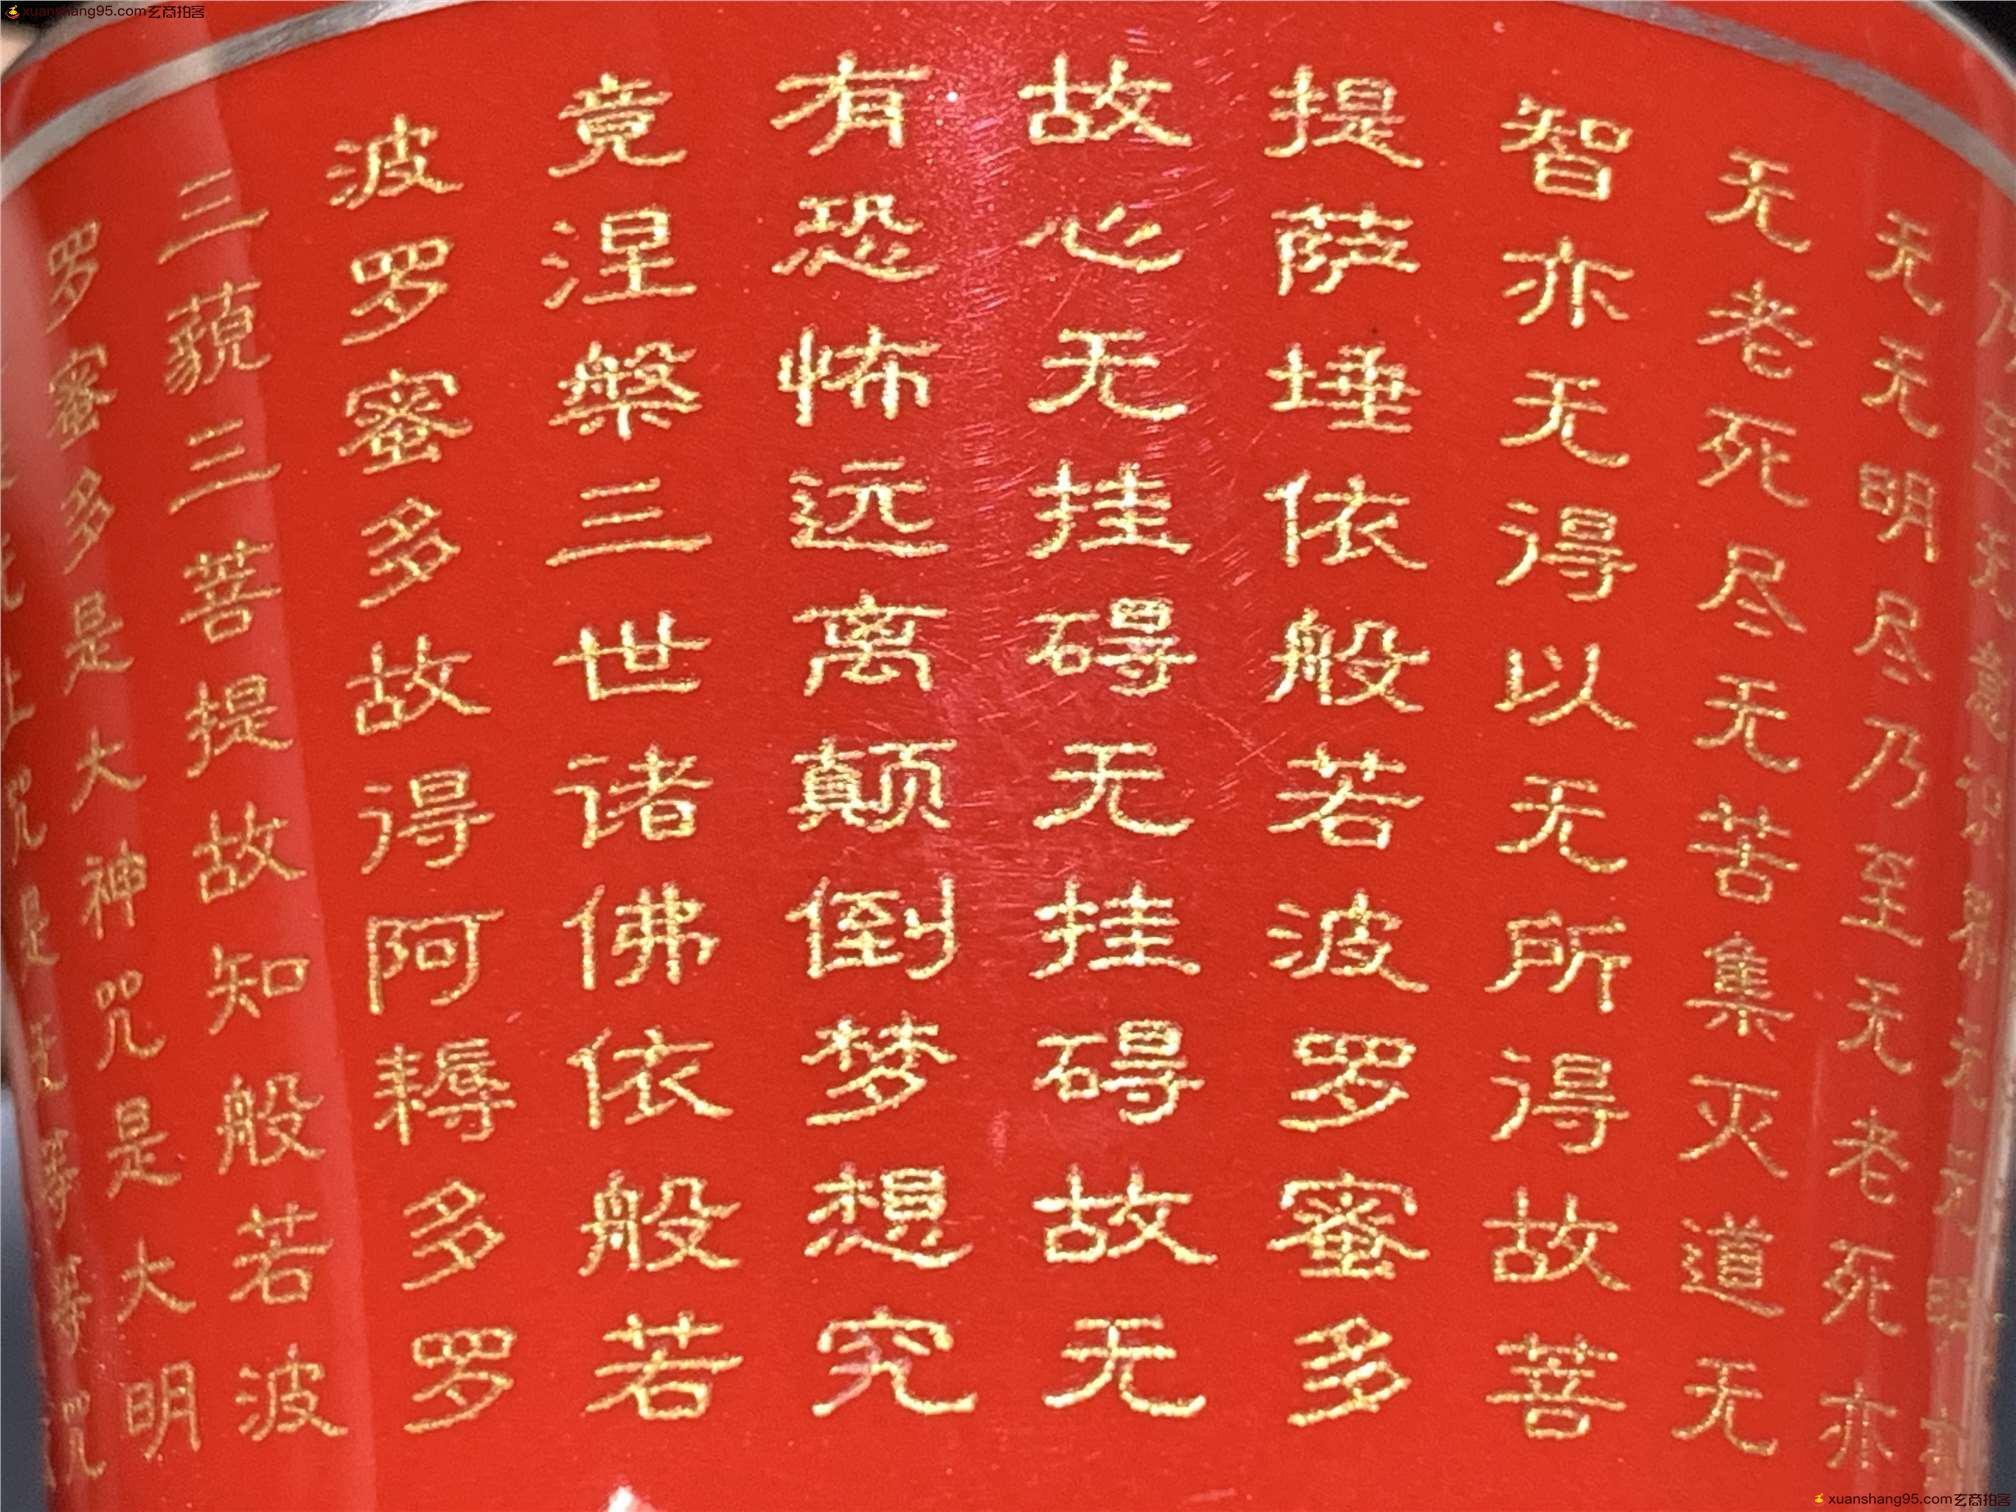 xuanshang95.com玄商拍客
乃至无意识界无无明
无无明尽乃至无老死亦
无老死尽无苦集灭道无
智亦无得以无所得故菩
提萨埵依般若波罗蜜多
故心无挂碍无挂碍故无
有恐怖远离颠倒梦想究
竟涅槃三世诸佛依般若
波罗蜜多故得阿耨多罗
三藐三菩提故知般若波
罗蜜多是大神咒是大明
上咒是无等等咒
xuanshang95.com玄商拍客